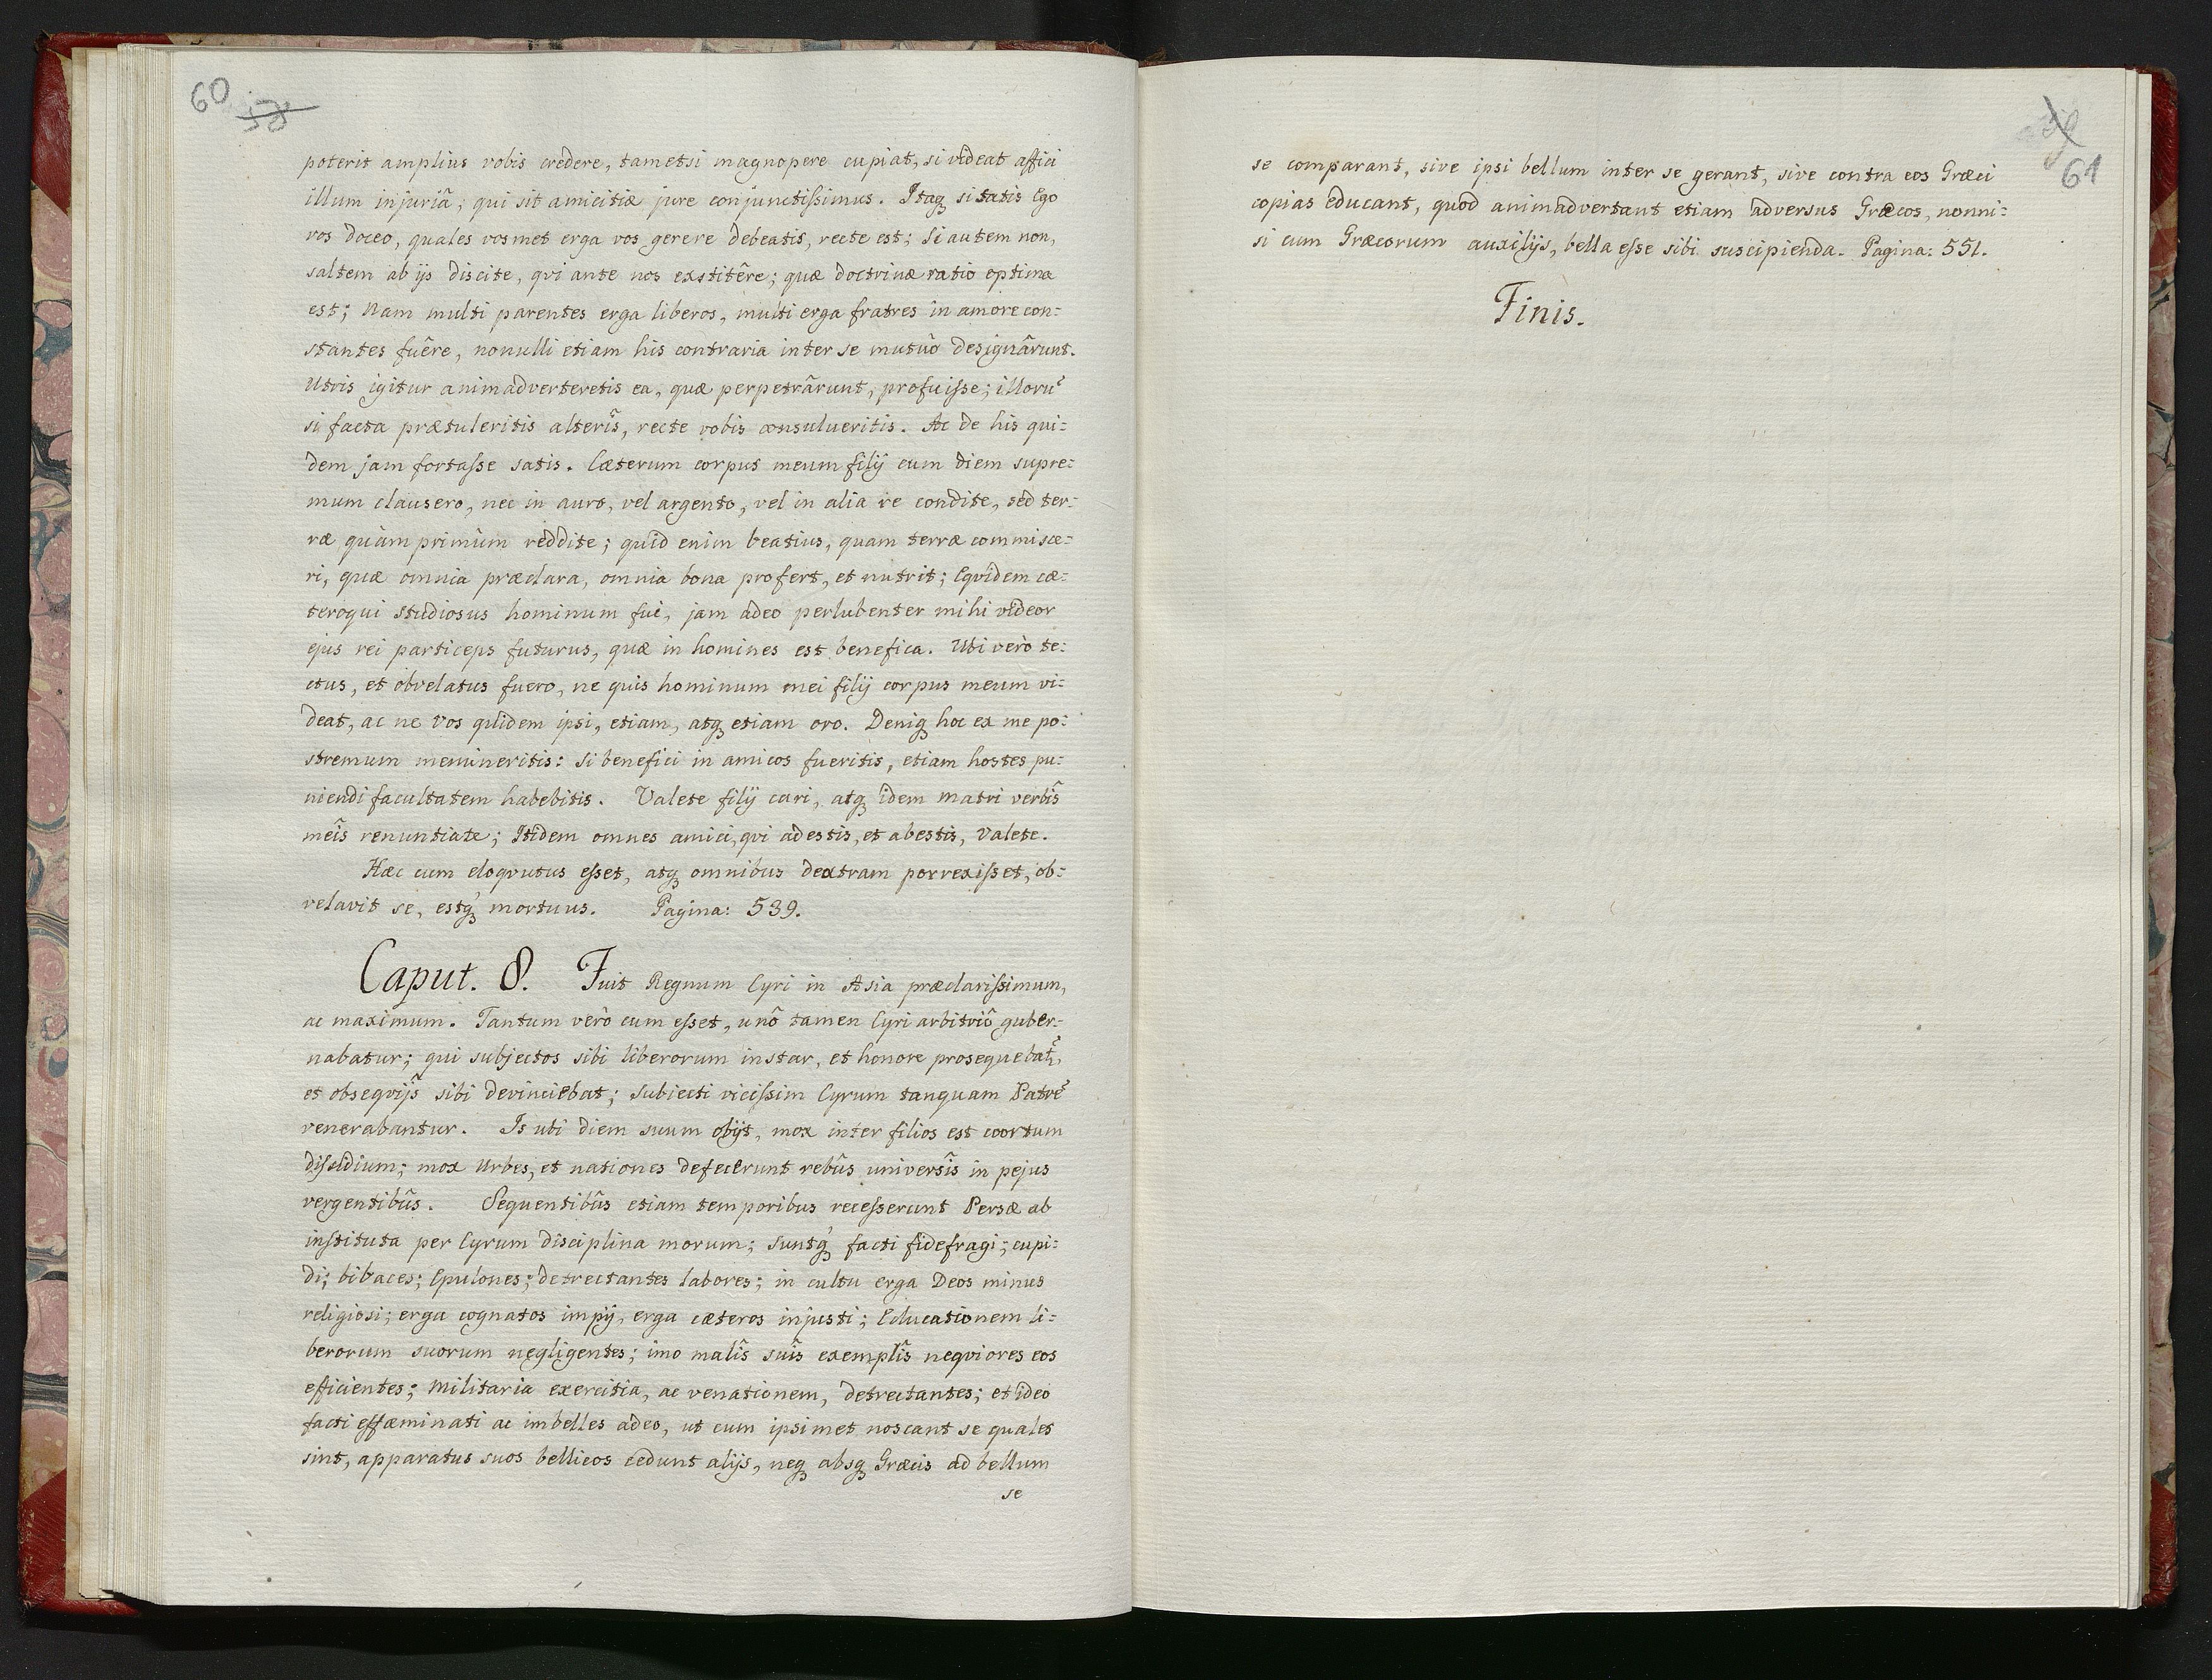 60 58
poterit amplius vobis credere, tametsi magnopere cupiat, si videat affici
illum injuriâ; qui sit amicitiæ jure conjunctißimus. Itaq́ si satis Ego
vos doceo, quales vosmet erga vos gerere debeatis, recte est; Si autem non,
saltem ab ijs discite, qvi ante nos exstitêre; quæ doctrinæ ratio optima
est; Nam multi parentes erga liberos, multi erga fratres in amore con:
stantes fuêre, nonulli etiam his contraria inter se mutuò designârunt.
Utris igitur animadverteretis ea, quæ perpetrârunt, profuiße; illorũ
si facta prætuleritis alterîs, recte vobis consulueritis. Ac de his qui:
dem jam fortaße satis. Cæterum corpus meum filij cum diem supre:
mum clausero, nec in auro, vel argento, vel in alia re condite, sed ter:
ræ quàm primùm reddite; quid enim beatius, quam terræ commisce:
ri, quæ omnia præclara, omnia bona profert, et nutrit; Eqvidem cæ:
teroqui studiosus hominum fui, jam adeo perlubenter mihi videor
ejus rei particeps futurus, quæ in homines est benefica. Ubi verò te:
ctus, et obvelatus fuero, ne quis hominum mei filij corpus meum vi:
deat, ac ne vos quidem ipsi, etiam, atq́ etiam oro. Deniq́ hoc ex me po:
stremum memineritis: Si benefici in amicos fueritis, etiam hostes pu:
niendi facultatem habebitis. Valete filij cari, atq́ idem matri verbîs
meîs renuntiate; Itidem omnes amici, qvi adestis, et abestis, valete.
Hæc cum eloqvutus eßet, atq́ omnibus dextram porrexißet, ob:
velavit se, estq́ mortuus. Pagina: 539.
Caput. 8. Fuit Regnum Cyri in Asia præclarißimum,
ac maximum. Tantum verò cum eßet, unô tamen Cyri arbitriô guber:
nabatur; qui subjectos sibi liberorum instar, et honore prosequebatr̃,
et obseqvijs sibi devinciebat; subiecti vicißim Cyrum tanquam Patrẽ
venerabantur. Is ubi diem suum obijt, mox inter filios est coortum
dißidium; mox Urbes, et nationes defecerunt rebûs universîs in pejus
vergentibûs. Sequentibûs etiam temporibus receßerunt Persæ ab
instituta per Cyrum disciplina morum; suntq́ facti fidefragi; cupi:
di; bibaces; Epulones; detrectantes labores; in cultu erga Deos minus
religiosi; erga cognatos impij, erga cæteros injusti; Educationem li:
berorum suorum negligentes; imo malîs suîs exemplîs neqviores eos
efficientes; Militaria exercitia, ac venationem, detrectantes; et ideo
facti effæminati ac imbelles adeo, ut cum ipsimet noscant se quales
sint, apparatus suos bellicos cedunt alijs, neq́ absq́ Græcis ad bellum
se
61
se comparant, sive ipsi bellum inter se gerant, sive contra eos Græci
copias educant, quod animadvertant etiam adversus Græcos, nonni:
si cum Græcorum auxilijs, bella eße sibi suscipienda. Pagina: 551.
Finis.